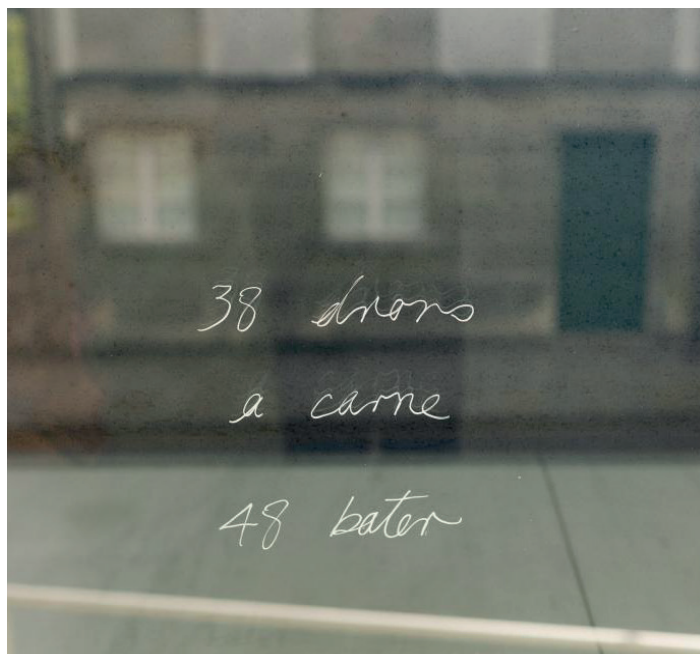 38 drons
a carne
48 bater